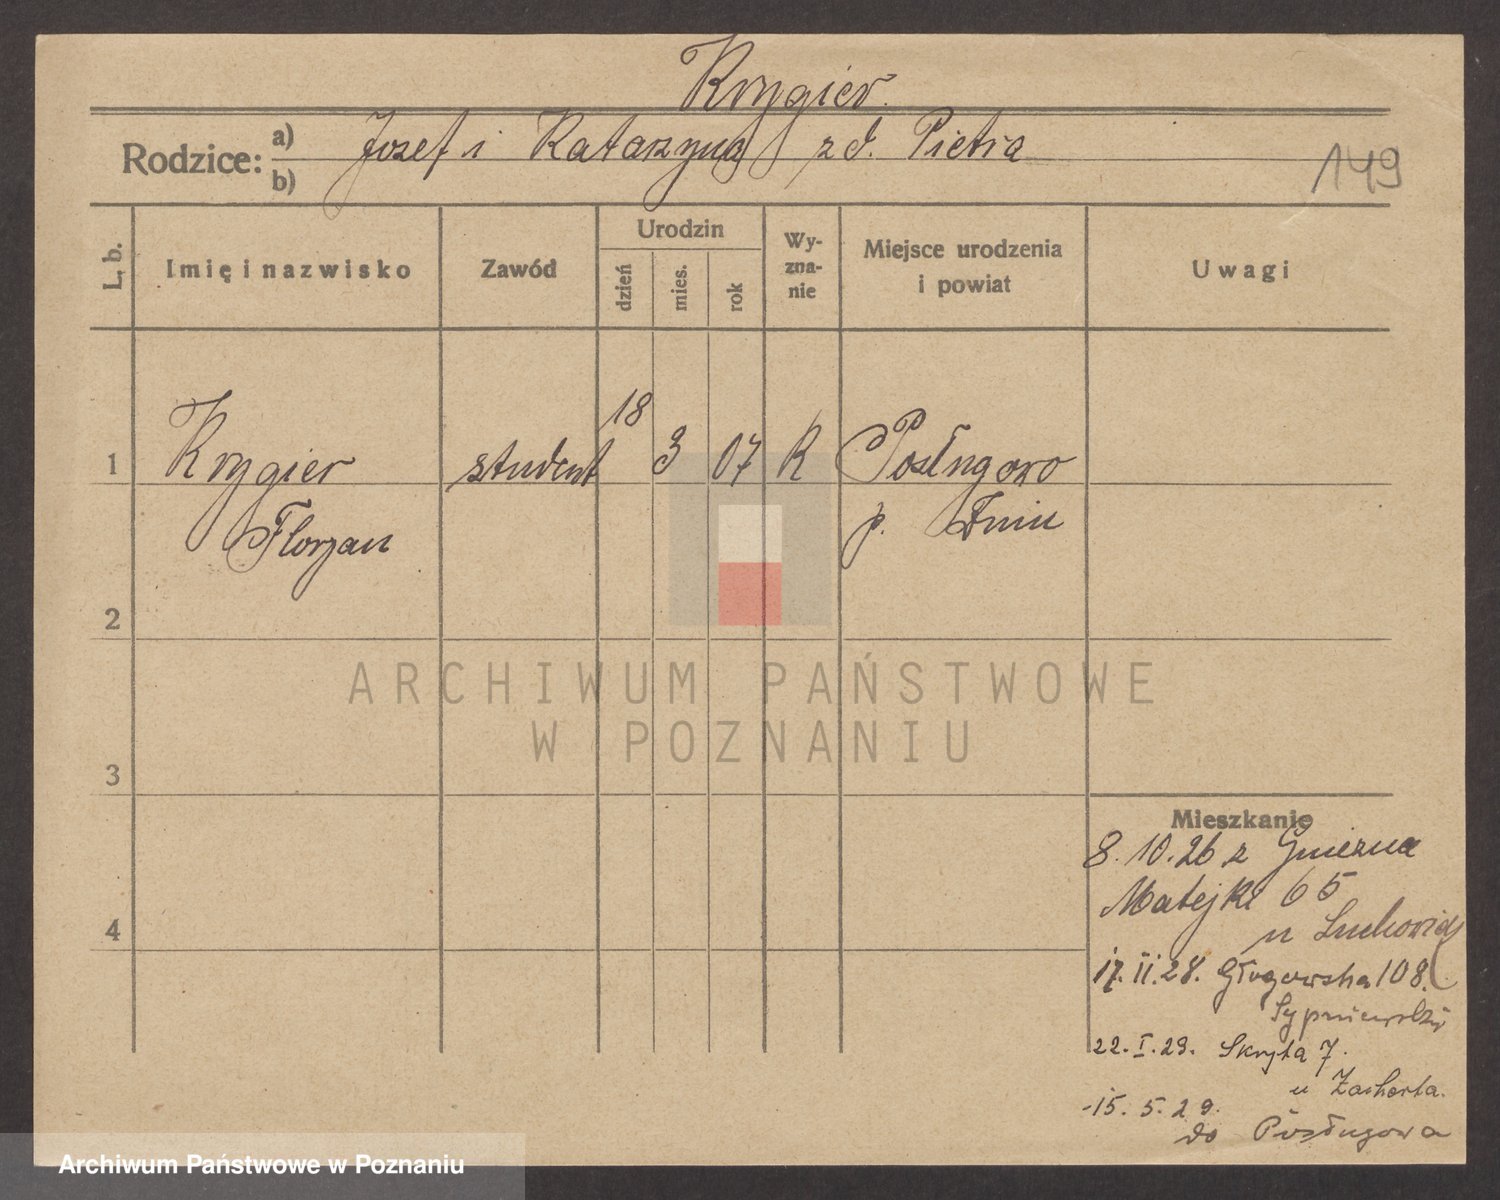 Krygier.
Rodzice: a) b) Jozef i Katarzyna z d. Pietra
149
L. b.
Imię i nazwisko
Zawód
Urodzin
dzień
mies.
rok
Wy-
zna-
nie
Miejsce urodzenia
i powiat
Uwagi
1 Krygier student 18 3 07 R Posługowo
Florjan p. Żnin
2
3
4
Mieszkanie
8.10.26 z Gniezna
Matejki 65
u
17.II.28. Głogowska 108.
22.I.29. Skryta 7.
u Zacherta.
-15.5.29.
do Posługowa
ARCHIWUM PAŃSTWOWE
W POZNANIU
Archiwum Państwowe w Poznaniu